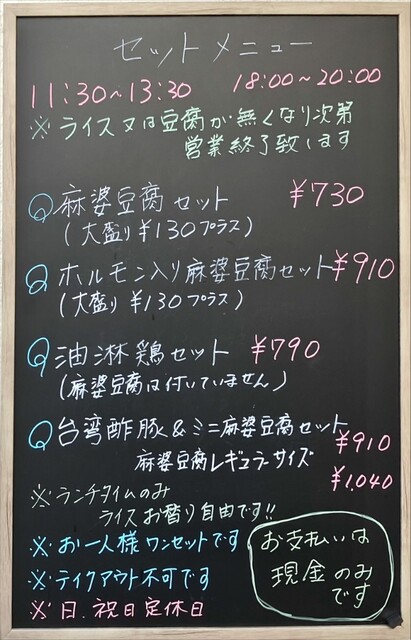 セットメニュー
11:30~13:30 18:00~20:00
※ライス又は豆腐が無くなり次第
営業終了致します
麻婆豆腐セット ¥730
(大盛り¥130プラス)
ホルモン入り麻婆豆腐セット ¥910
(大盛り¥130プラス)
油淋鶏セット ¥790
(麻婆豆腐は付いていません)
台湾酢豚&ミニ麻婆豆腐セット
¥910
麻婆豆腐レギュラーサイズ
¥1,040
※ランチタイムのみ
ライスお替り自由です!!
※お一人様ワンセットです
※テイクアウト不可です
※日、祝日定休日
お支払いは
現金のみ
です